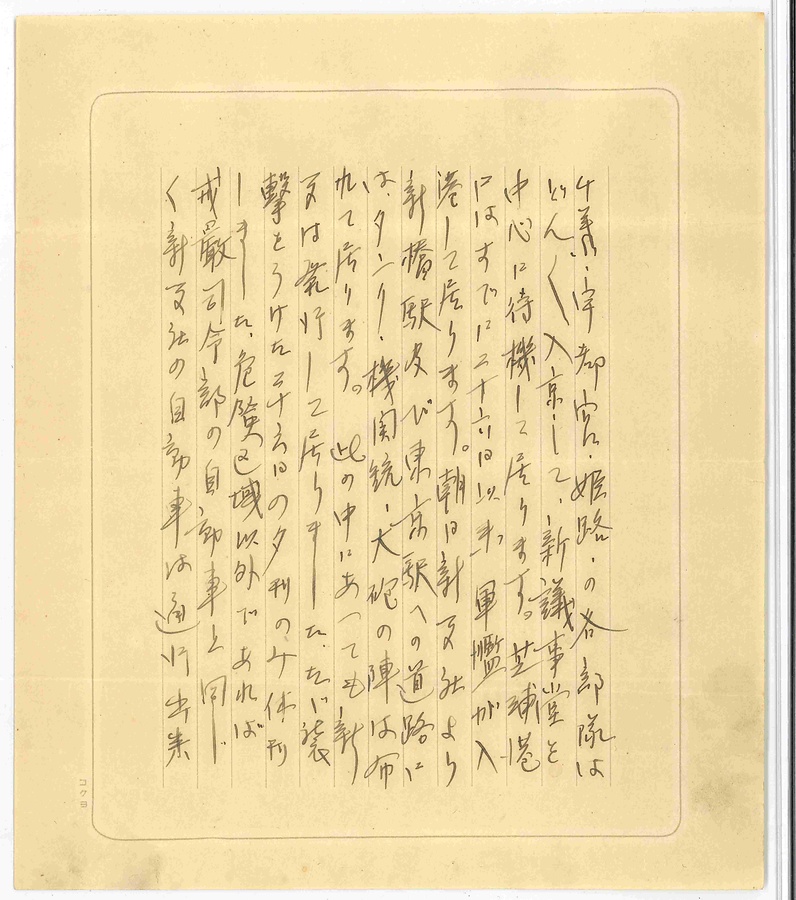 千葉・宇都宮・姫路・の各部隊は
どん〱入京して、新議事堂を
中心に待機して居ります。芝浦港
にはすでに二十六日以来、軍艦が入
港して居ります。朝日新聞社より
新橋駅及び東京駅への道路に
は、タンク・機関銃・大砲の陣は布
かれて居ります。此の中にあっても新
聞は発行して居りました。たゞ襲
撃をうけた二十六日の夕刊のみ休刊
しました。危険区域以外であれば
戒厳司令部の自動車と同じ
く新聞社の自動車は通行出来
コクヨ